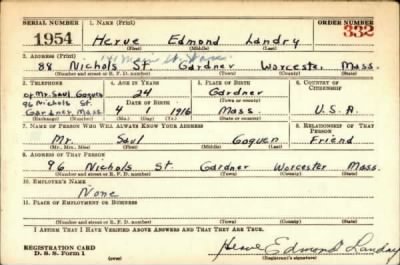 SERIAL NUMBER 1. NAME (Print) ORDER NUMBER
1954 Herve Edmond Landry 332
(First) (Middle) (Last)
2. ADDRESS (Print)
88 Nichols St. Gardner Worcester Mass.
(Number and street or R. F. D. number) (Town) (County) (State)
3. TELEPHONE 4. AGE IN YEARS 5. PLACE OF BIRTH 6. COUNTRY OF CITIZENSHIP
of Mr. Saul Goguen 24 Gardner
96 Nichols St. DATE OF BIRTH (Town or county)
Gardner Mass 4 1 1916 Mass U.S.A.
(Exchange) (Number) (Mo.) (Day) (Yr.) (State or country)
7. NAME OF PERSON WHO WILL ALWAYS KNOW YOUR ADDRESS 8. RELATIONSHIP OF THAT PERSON
Mr. Saul Goguen Friend
(Mr., Mrs., Miss) (First) (Middle) (Last)
9. ADDRESS OF THAT PERSON
96 Nichols St Gardner Worcester Mass.
(Number and street or R. F. D. number) (Town) (County) (State)
10. EMPLOYER'S NAME
None
11. PLACE OF EMPLOYMENT OR BUSINESS
(Number and street or R. F. D. number) (Town) (County) (State)
I AFFIRM THAT I HAVE VERIFIED ABOVE ANSWERS AND THAT THEY ARE TRUE.
REGISTRATION CARD
D. S. S. Form 1 (over) Herve Edmond Landry
(Registrant's signature)